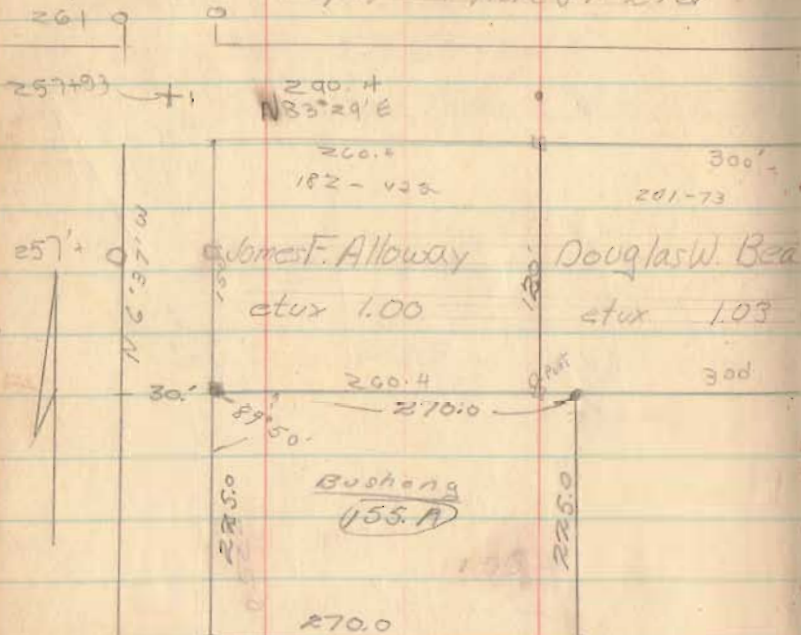 261
257+93 +
290.4
N83°29'E
260.4
182 - 422
300'
201-73
257'+
N 6° 37' W
James F. Alloway
etux 1.00
Douglas W. Bea
etux 1.03
30.'
260.4
Post
300
270.0
89° 50'
Bushong
225.0
225.0
270.0